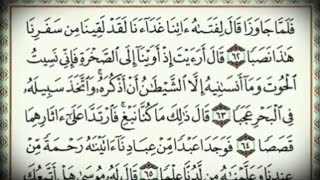 فَلَمَّا جَاوَزَا قَالَ لِفَتَىٰهُ ءَاتِنَا غَدَآءَنَا لَقَدْ لَقِينَا مِن سَفَرِنَا
هَٰذَا نَصَبًا ٦٢ قَالَ أَرَءَيْتَ إِذْ أَوَيْنَآ إِلَى ٱلصَّخْرَةِ فَإِنِّى نَسِيتُ
ٱلْحُوتَ وَمَآ أَنسَىٰنِيهُ إِلَّا ٱلشَّيْطَٰنُ أَنْ أَذْكُرَهُۥ ۚ وَٱتَّخَذَ سَبِيلَهُۥ
فِى ٱلْبَحْرِ عَجَبًا ٦٣ قَالَ ذَٰلِكَ مَا كُنَّا نَبْغِ ۚ فَٱرْتَدَّا عَلَىٰٓ ءَاثَارِهِمَا
قَصَصًا ٦٤ فَوَجَدَا عَبْدًا مِّنْ عِبَادِنَآ ءَاتَيْنَٰهُ رَحْمَةً مِّنْ
عِندِنَا وَعَلَّمْنَٰهُ مِن لَّدُنَّا عِلْمًا ٦٥ قَالَ لَهُۥ مُوسَىٰ هَلْ أَتَّبِعُكَ